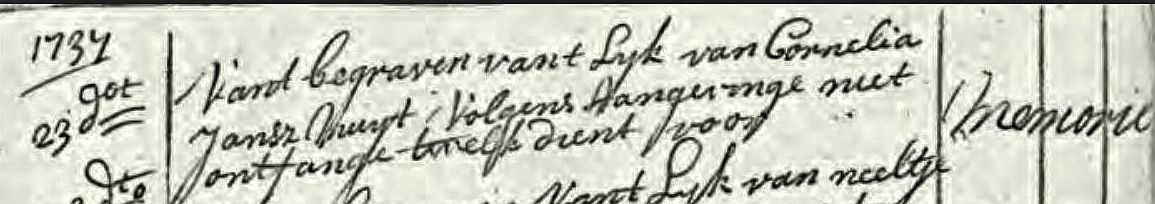 1737
got
23 do
Vant begraven vant Lyk van Cornelia
Jansz Muyt, Volgens Aangevinge niet
ontfange dient voor Memorie
Dto
Vant Lyk van neeltje